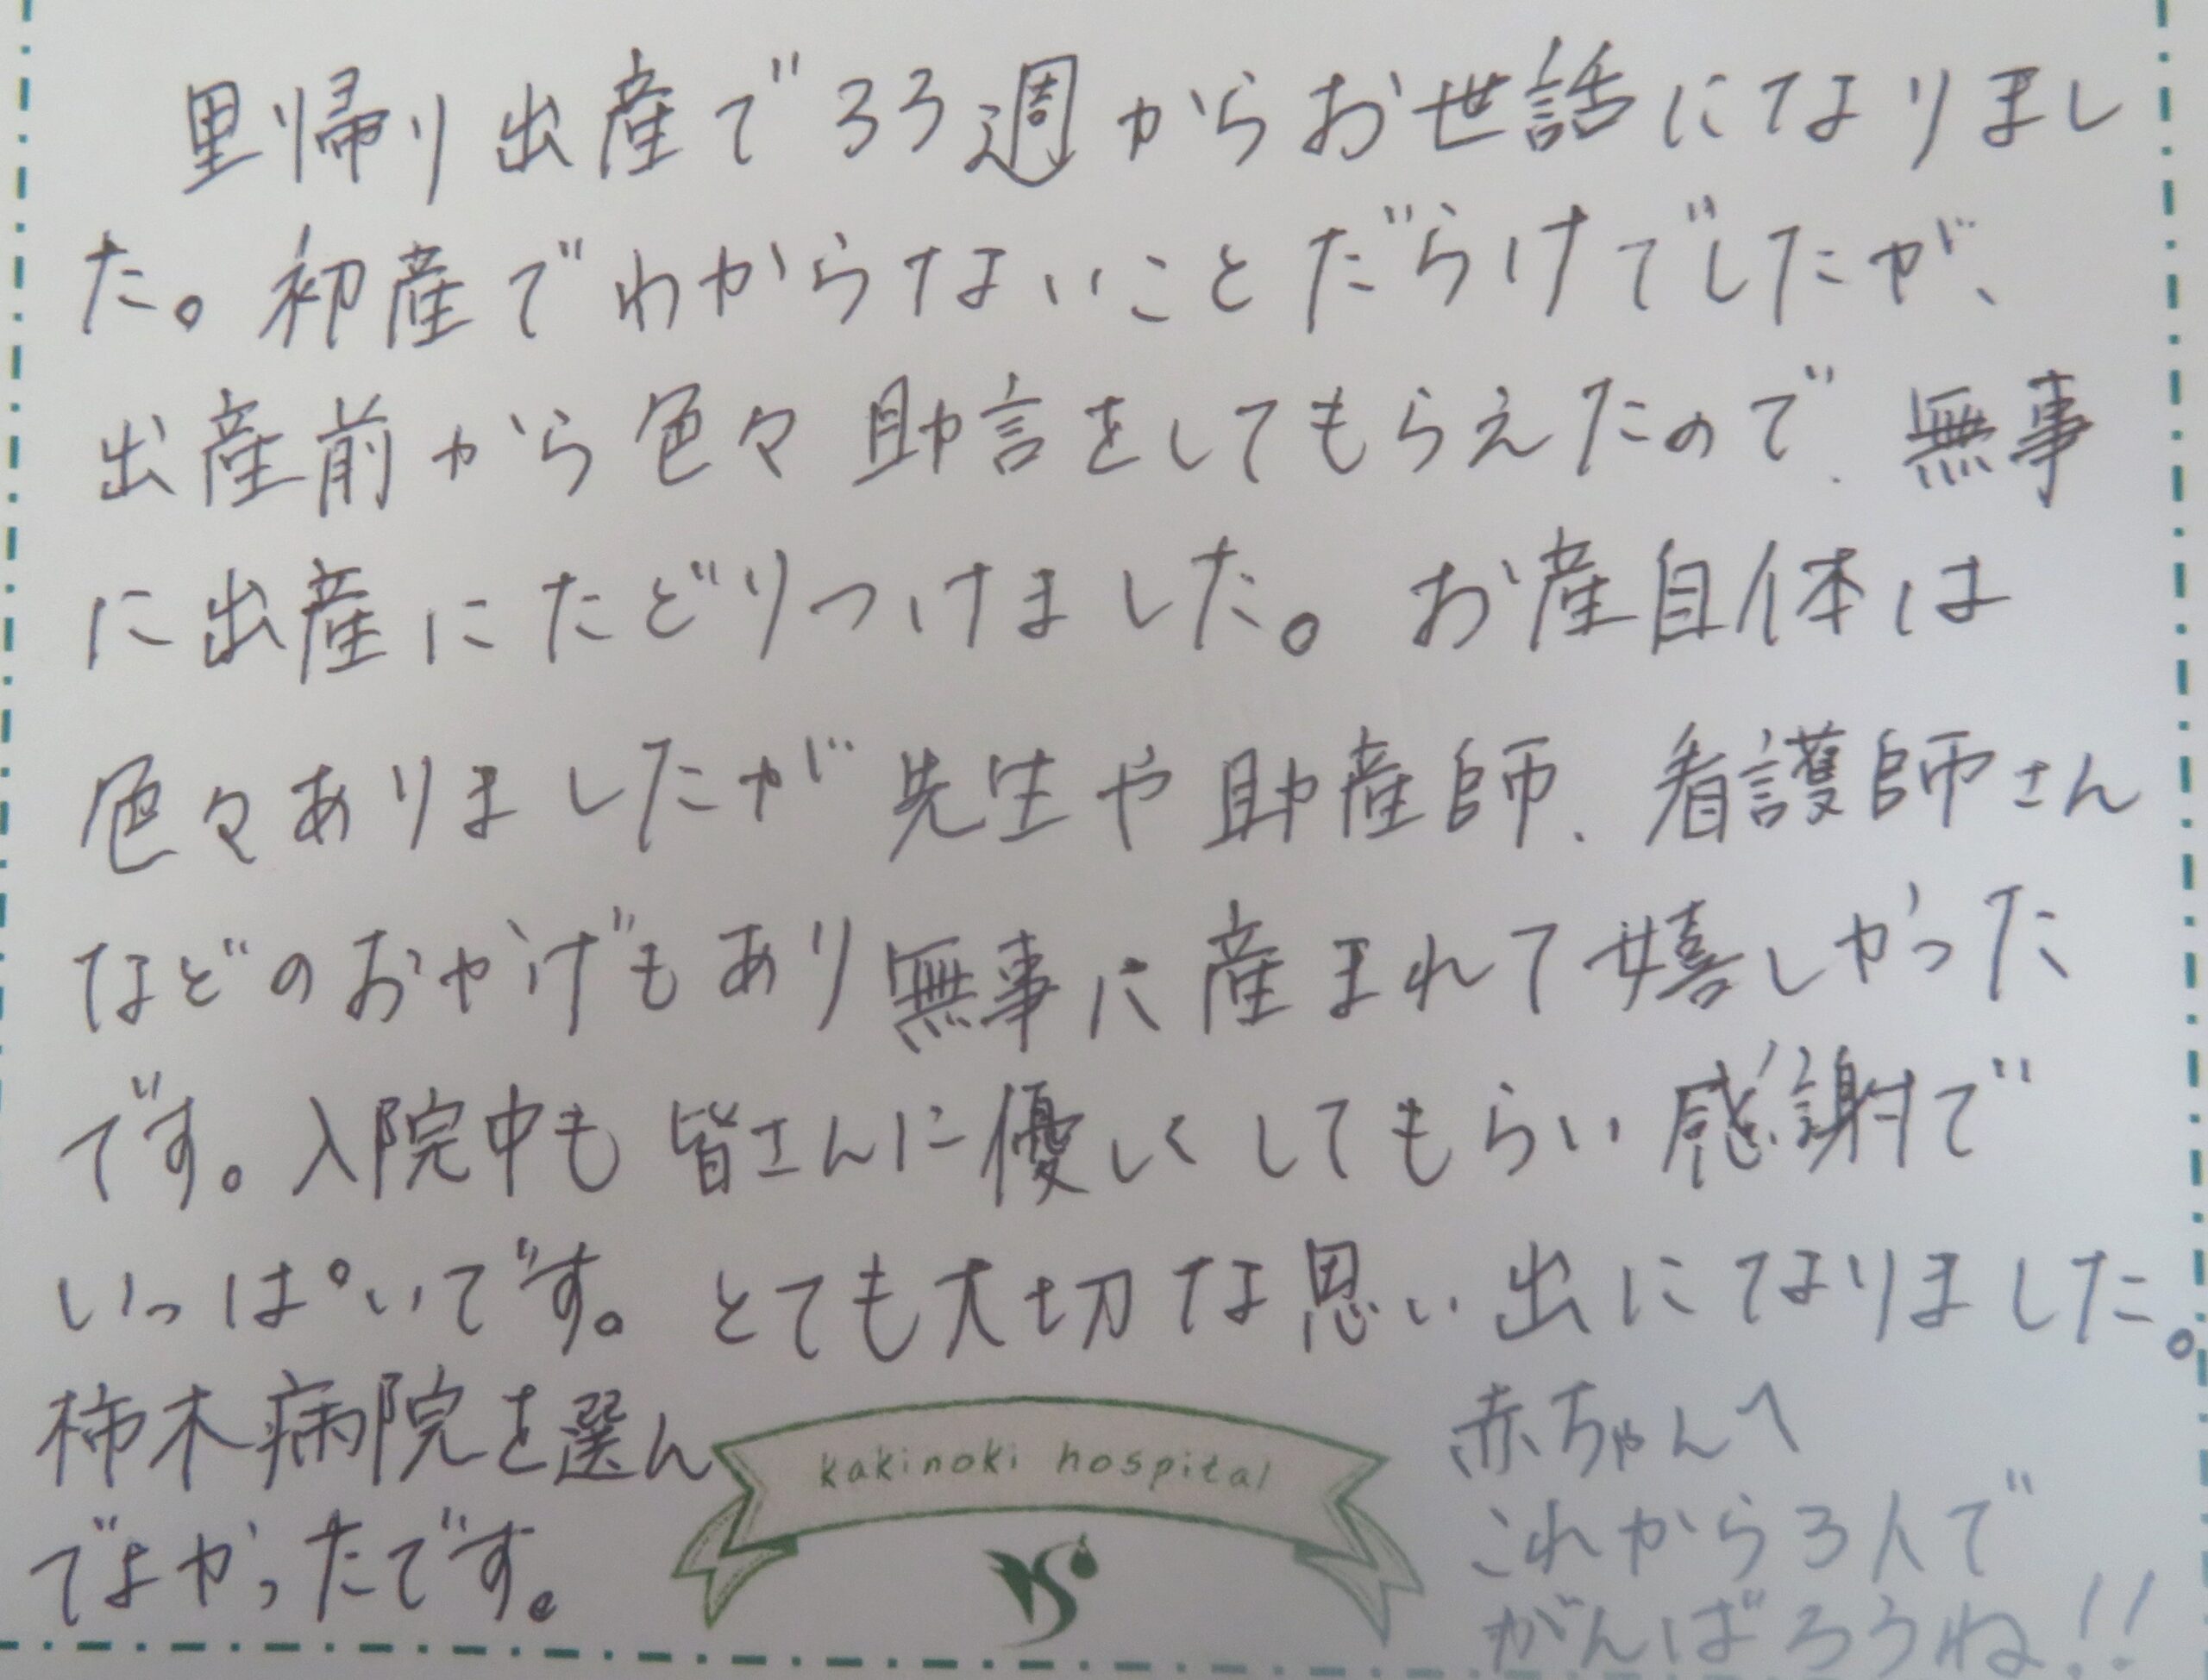 里帰り出産で33週からお世話になりまし
た。初産でわからないことだらけでしたが、
出産前から色々助言をしてもらえたので、無事
に出産にたどりつけました。お産自体は
色々ありましたが先生や助産師、看護師さん
などのおかげもあり無事に産まれて嬉しかった
です。入院中も皆さんに優しくしてもらい感謝で
いっぱいです。とても大切な思い出になりました。
柿木病院を選ん
でよかったです。
kakinoki hospital
赤ちゃんへ
これから3人で
がんばろうね!!